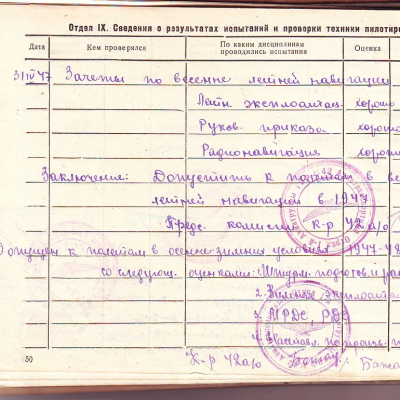 Отдел IX. Сведения о результатах испытаний и проверки техники пилотиро
Дата Кем проверялся По каким дисциплинам проводились испытания Оценка
31/IV 47 Зачеты по весенне летней навигации
Летн. эксплоатац. хорошо
Руков. приказа хорошо
Радионавигация хорош
Заключение: Допустить к полетам в ве
летней навигации в 1947
Предс. комиссии К-р 42 а/о
Допущен к полетам в осенне-зимних условиях 1947-48
со следующ. оценками: Штурм. подготов.
2. Зимняя эксплоата
3. МРДС, РД
4. Наставл. по произв. п
50
К-р 42 а/о